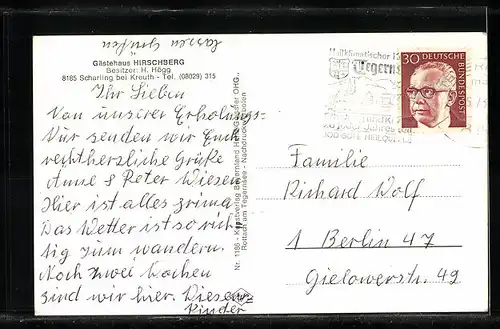 lassen grüßen
Gästehaus HIRSCHBERG
Besitzer: H. Högg
8185 Scharling bei Kreuth - Tel. (08029) 315
Ihr Lieben
Von unserer Erholungs-
Kur senden wir Euch
recht herzliche Grüße
Anne & Peter Wiesen
Hier ist alles prima
Das Wetter ist so rich
tig zum wandern.
Noch zwei Wochen
sind wir hier. Diesen
Kinder
Nr. 1186 - Kunstverlag OHG.,
Rottach am Tegernsee - Nachdruck verboten
Heilklimatischer
Tegerns
zu jeder Jahreszeit
30
DEUTSCHE BUNDESPOST
Familie
Richard Wolf
1 Berlin 47
Gielowerstr. 49